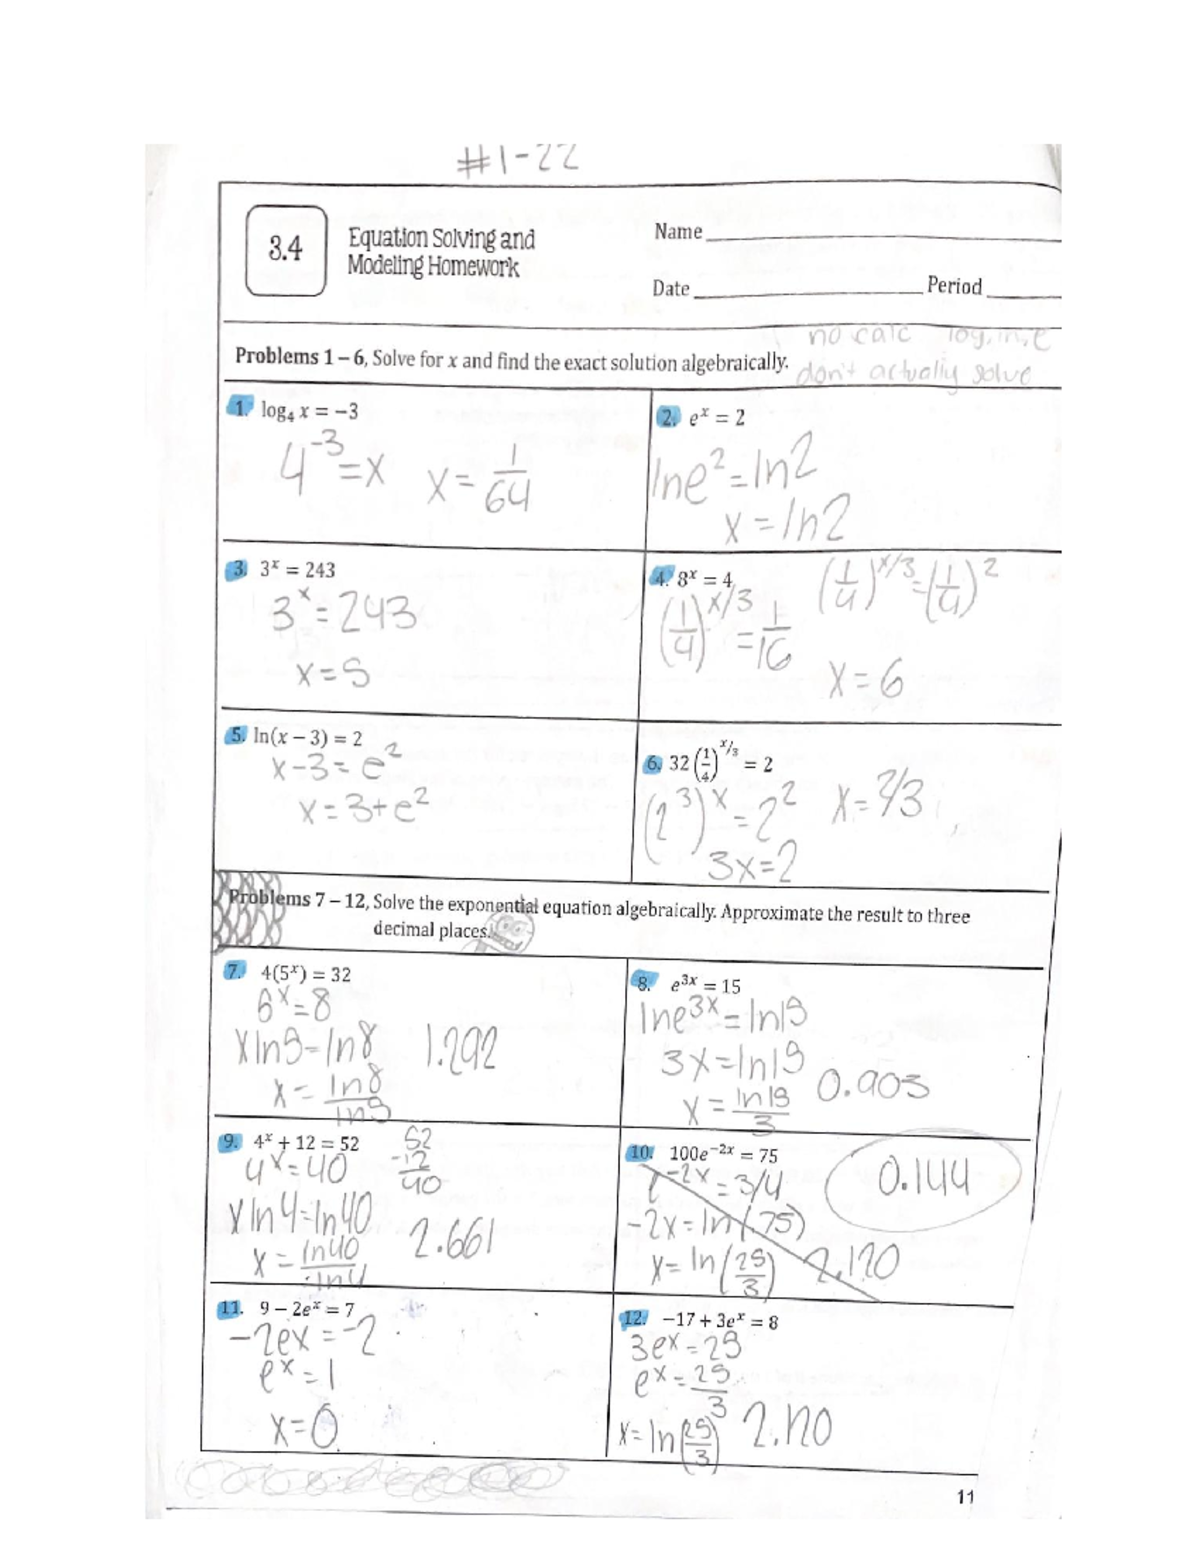 #1-22
3.4
Equation Solving and
Modeling Homework
Name
Date
Period
no calc log, ln, e
don't actually solve
Problems 1 – 6, Solve for x and find the exact solution algebraically.
1. log₄ x = −3
4⁻³=x x=1/64
2. eˣ = 2
lne²=ln2
x=ln2
3. 3ˣ = 243
3ˣ=243
x=5
4. 8ˣ = 4
(1/4)^x/3 = 1/16
(1/4)^x/3=(1/4)²
x=6
5. ln(x − 3) = 2
x-3=e²
x=3+e²
6. 32(1/4)^x/3 = 2
(2³)ˣ=2² x=2/3
3x=2
Problems 7 – 12, Solve the exponential equation algebraically. Approximate the result to three
decimal places.
7. 4(5ˣ) = 32
6ˣ=8
xln9=ln8 1.292
x=ln8/ln9
8. e³ˣ = 15
lne³ˣ=ln19
3x=ln19
x=ln19/3 0.903
9. 4ˣ + 12 = 52
52
-12
40
4ˣ=40
xln4=ln40
x=ln40/ln4 2.661
10. 100e⁻²ˣ = 75
e⁻²ˣ=3/4
0.144
-2x=ln(.75)
x=ln(25/3) 2.120
11. 9 − 2eˣ = 7
-2ex=-2
eˣ=1
x=0
12. −17 + 3eˣ = 8
3eˣ=25
eˣ=25/3
x=ln(25/3) 2.120
11